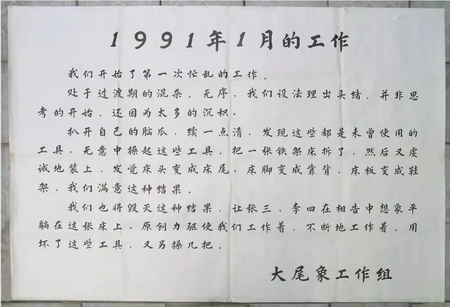 1991年1月的工作
我们开始了第一次忙乱的工作.
处于过渡期的混杂.无序.我们设法理出头绪.并非思
考的开始.还因为太多的沉积.
扒开自己的脑瓜.续一点清.发现这些都是未曾使用的
工具.无意中操起这些工具.把一张铁架床拆了.然后又虔
诚地装上.发觉床头变成床尾.床脚变成靠背.床板变成鞋
架.我们满意这种结果.
我们也将毁灭这种结果.让张三.李四在相告中想象平
躺在这张床上.原创力驱使我们工作着.不断地工作着.用
坏了这些工具.又另操几把.
大尾象工作组